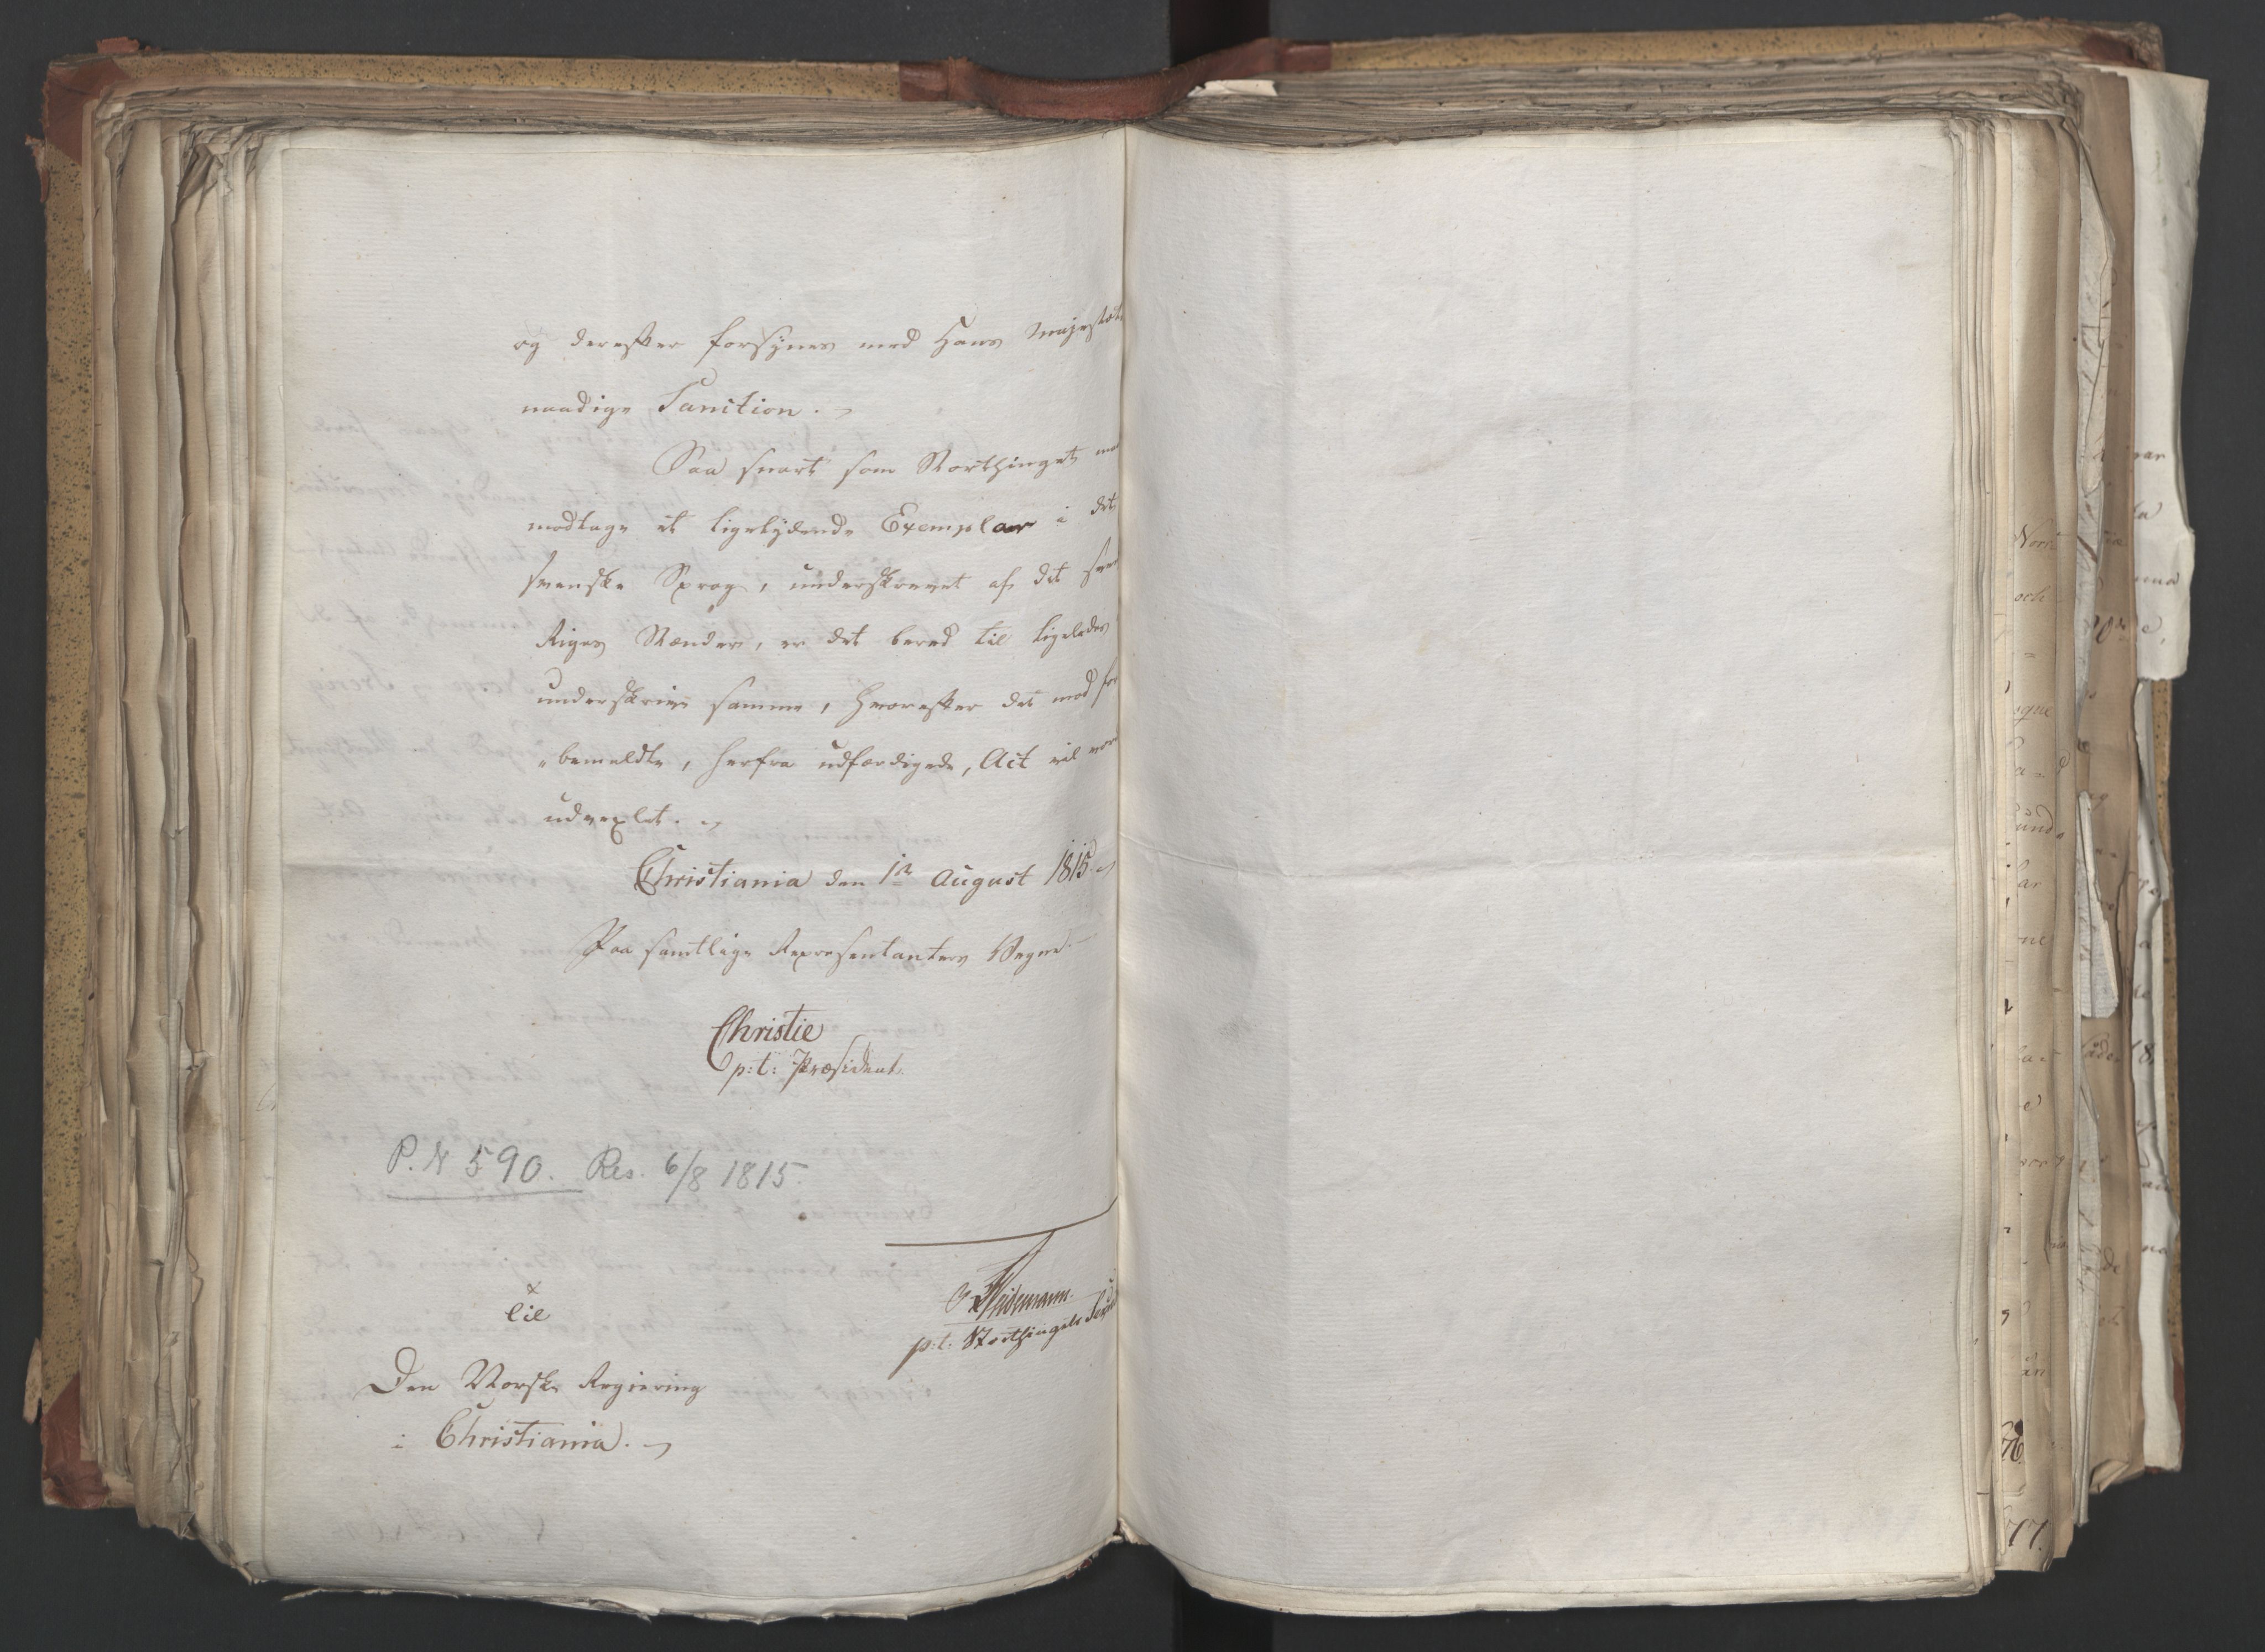 og derefter forsynes med Hans Majestæts
naadige Sanction.
Saa snart som Storthinget
modtage et ligelydende Exemplar i det
svenske Sprog, underskrevet af det
Riges Stænder, er det bered til ligeledes
underskrive samme, hvorefter det mod
bemeldte, herfra udfærdigede, Act vil
udvexlet.
Christiania den 1ste August 1815.
Paa samtlige Repræsentanters Vegne
Christie
p:t: Præsident.
P. N 590. Res. 6/8 1815.
Weidemann.
p:t: Storthingets
Til
Den Norske Regiering
i Christiania.
Norr
och
77.